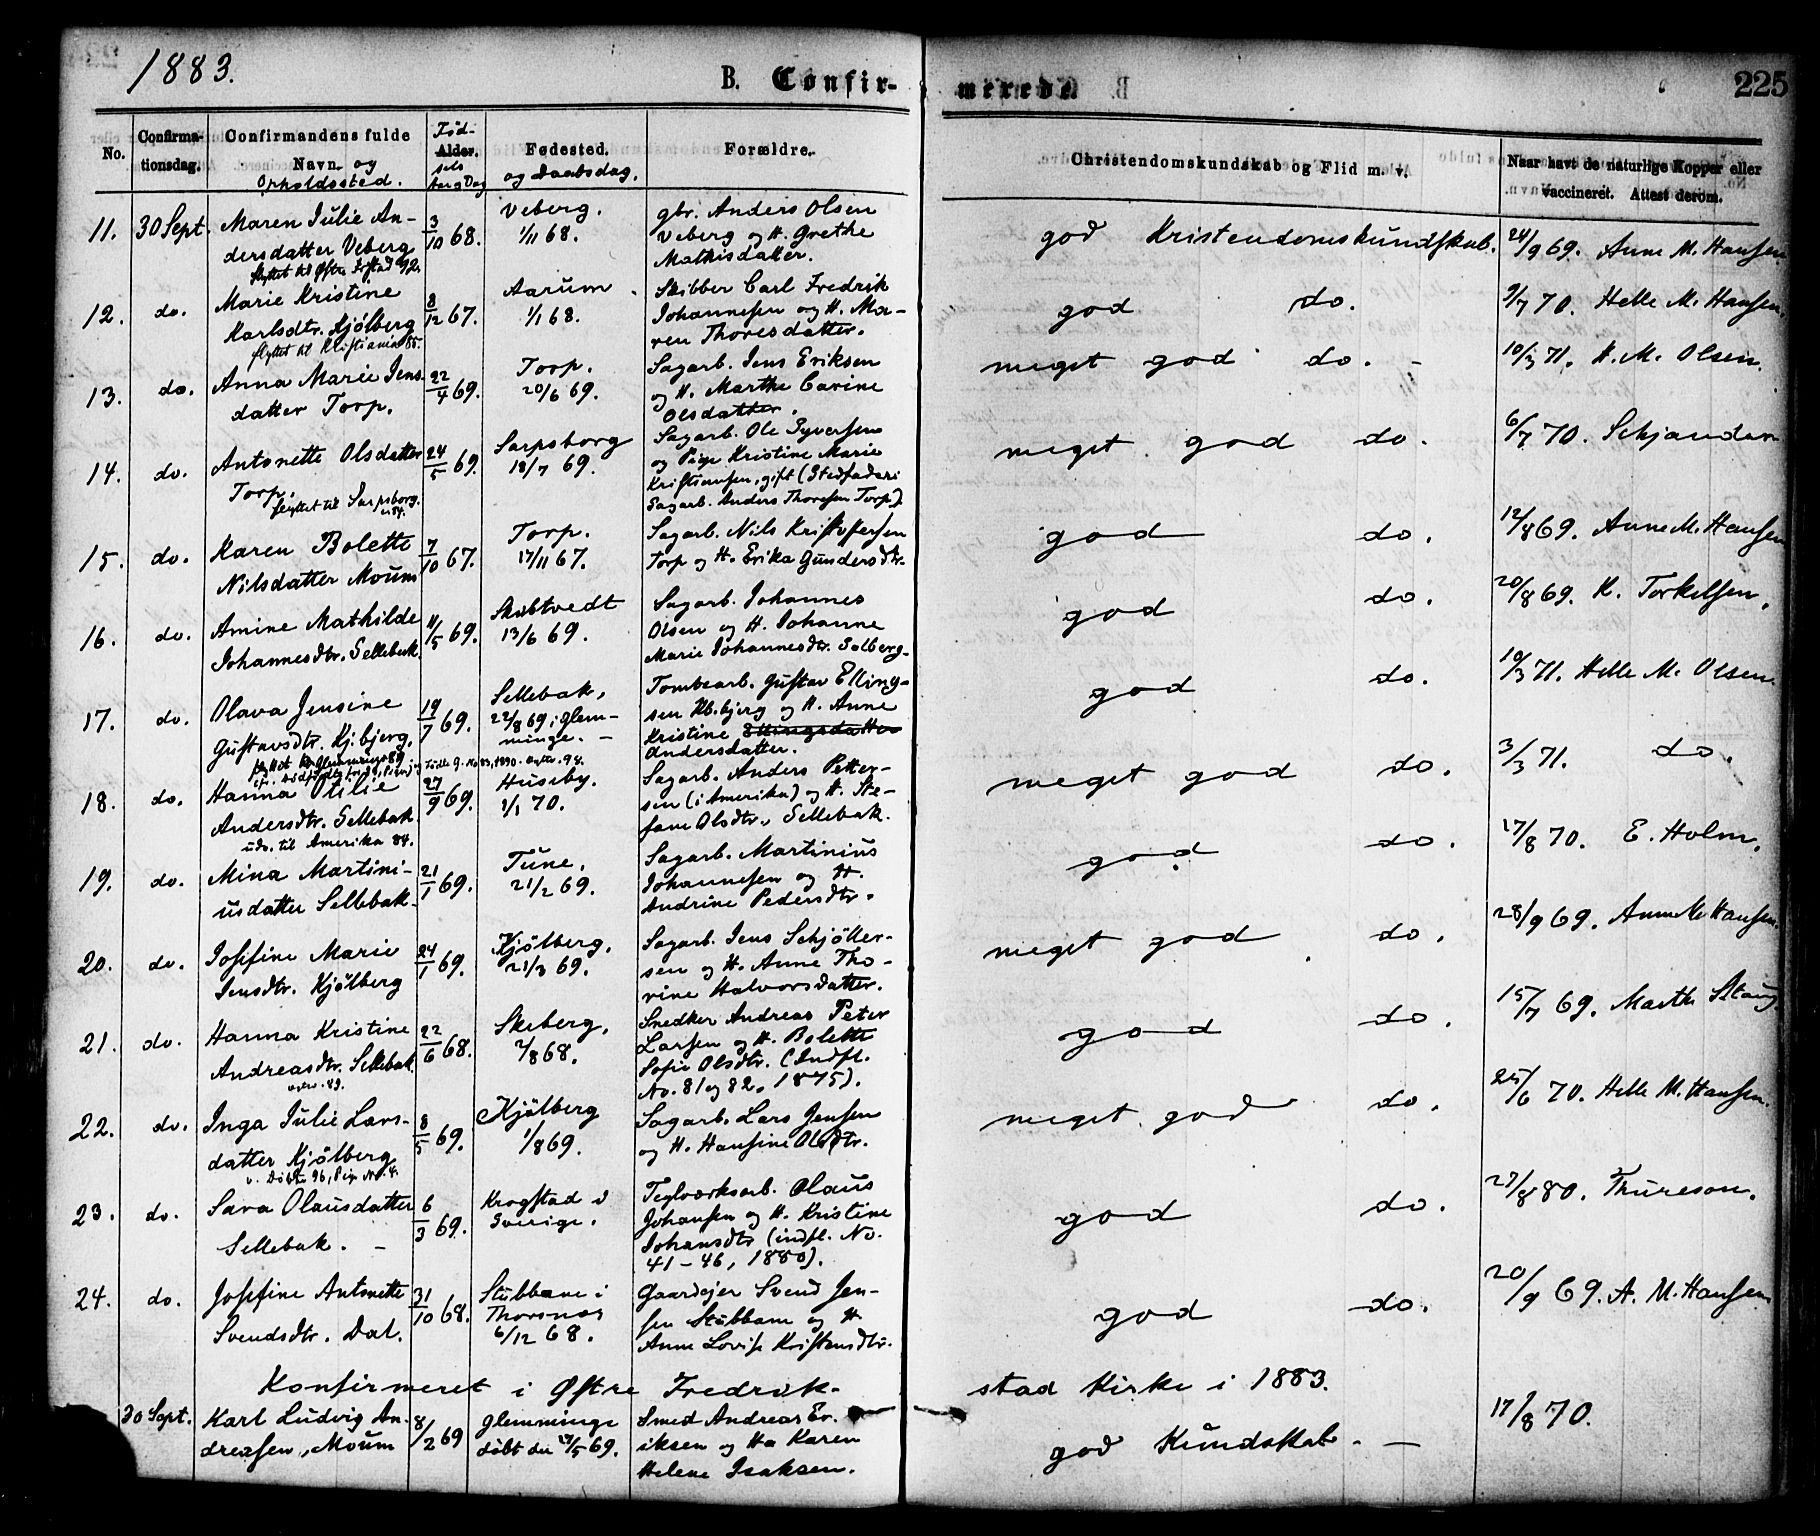 1883.
B. Confir-
merede
225
No.
Confirma-
tionsdag.
Confirmandens fulde
Navn og
Opholdssted.
Fød-
Alder.
sels
Aar og Dag
Fødested.
og Daabsdag.
Forældre.
Christendomskundskab og Flid m. v.
Naar havt de naturlige Kopper eller
vaccineret. Attest derom.
11. 30 Sept. Maren Julie An- 3/10 68. Veberg. gbr. Anders Olsen god Kristendomskundskab. 24/9 69. Anne M. Hansen
dersdatter Veberg 1/11 68. Veberg og H. Grethe
flyttet til Østre Frstad 92. Mathisdatter.
12. do. Marie Kristine 8/12 67. Aarum. Skibber Carl Fredrik god do. 9/7 70. Helle M. Hansen.
Karlsdtr. Kjölberg 1/1 68. Johannesen og H. Ma-
flyttet til Kristiania 85. ren Thoresdatter.
13. do. Anna Marie Jens- 22/4 69. Torp. Sagarb. Jens Eriksen meget god do. - 10/3 71. H. M. Olsen.
datter Torp. 20/6 69. og H. Marthe Carine
Olsdatter.
14. do. Antonette Olsdatter 24/5 69. Sarpsborg Sagarb. Ole Syversen meget god do. 6/7 70. Schjander
Torp. 18/7 69. og Pige Kristine Marie
flyttet til Sarpsborg Kristiansen, gift (Stedfader:
84. Sagarb. Anders Thoresen Torp).
15. do. Karen Bolette 7/10 67. Torp. Sagarb. Nils Kristoffersen god do. 12/8 69. Anne M. Hansen
Nilsdatter Moum 17/11 67. Torp og H. Erika Gundersdtr.
16. do. Amine Mathilde 11/5 69. Skubtvedt Sagarb. Johannes god do. 20/8 69. K. Torkelsen.
Johannesdtr. Sellebak. 13/6 69. Olsen og H. Johanne
Marie Johannesdtr. Solberg-
17. do. Olava Jensine 19/7 69. Sellebak, Tombearb. Gustav Elling- god do. 10/3 71. Helle M. Olsen.
Gustavsdtr. Kj. bjerg. 22/8 69 i Glem- sen Kb.bjerg og H. Anne
minge. - Kristine Ellingsdatter
Andersdatter.
18. do. Hanna Otilie 27/9 69. Huseby. Sagarb. Anders Petter- meget god do. 3/3 71. do.
Andersdtr. Sellebak. 1/1 70. sen (i Amerika) og H. Ste-
udv. til Amerika 84. fane Olsdtr. Sellebak.
19. do. Mina Martini- 21/1 69. Tune. Sagarb. Martinius god do. 17/8 70. E. Holm.
usdatter Sellebak. 21/2 69. Johannesen og H.
Andrine Pedersdtr.
20. do. Josefine Marie 24/1 69. Kjölberg. Sagarb. Jens Schjöller- meget god do. 28/9 69. Anne M. Hansen.
Jensdtr. Kjölberg 21/3 69. sen og H. Anne Tho-
rine Halvorsdatter.
21. do. Hanna Kristine 22/6 68. Skeberg. Snedker Andreas Peter god do. 15/7 69. Marth Stang
Andreasdtr. Sellebak. 2/8 68. Larsen og H. Bolette
Sofie Olsdtr. (Indfl.
No. 81 og 82, 1875).
22. do. Inga Julie Lars- 8/5 69. Kjölberg Sagarb. Lars Jensen meget god do. 25/6 70. Helle M. Hansen.
datter Kjölberg 1/8 69. og H. Hansine Olsdtr.
23. do. Sara Olausdatter 6/3 69. Krogstad i Teglværksarb. Olaus god do. 27/8 80. Thureson.
Sellebak. - Sverige. Johansen og H. Kristine
Johansdtr (indfl. No.
41-46, 1880).
24. do. Josefine Antonette 31/10 68. Stubbane i Gaardejer Svend Jen- god do. 20/9 69. A. M. Hansen
Svendsdtr. Dal. Thorsnæs sen Stubbane og H.
6/12 68. Anne Lovise Kristensdtr.
Konfirmeret i Østre Fredrik-
stad Kirke i 1883.
30 Sept. Karl Ludvig An- 8/2 69 Glemminge Smed Andreas Er- god Kundskab. - 17/8 70.
dreasen, Moum döbt den 17/5 69. iksen og Ha Karen
Helene Isaksen.